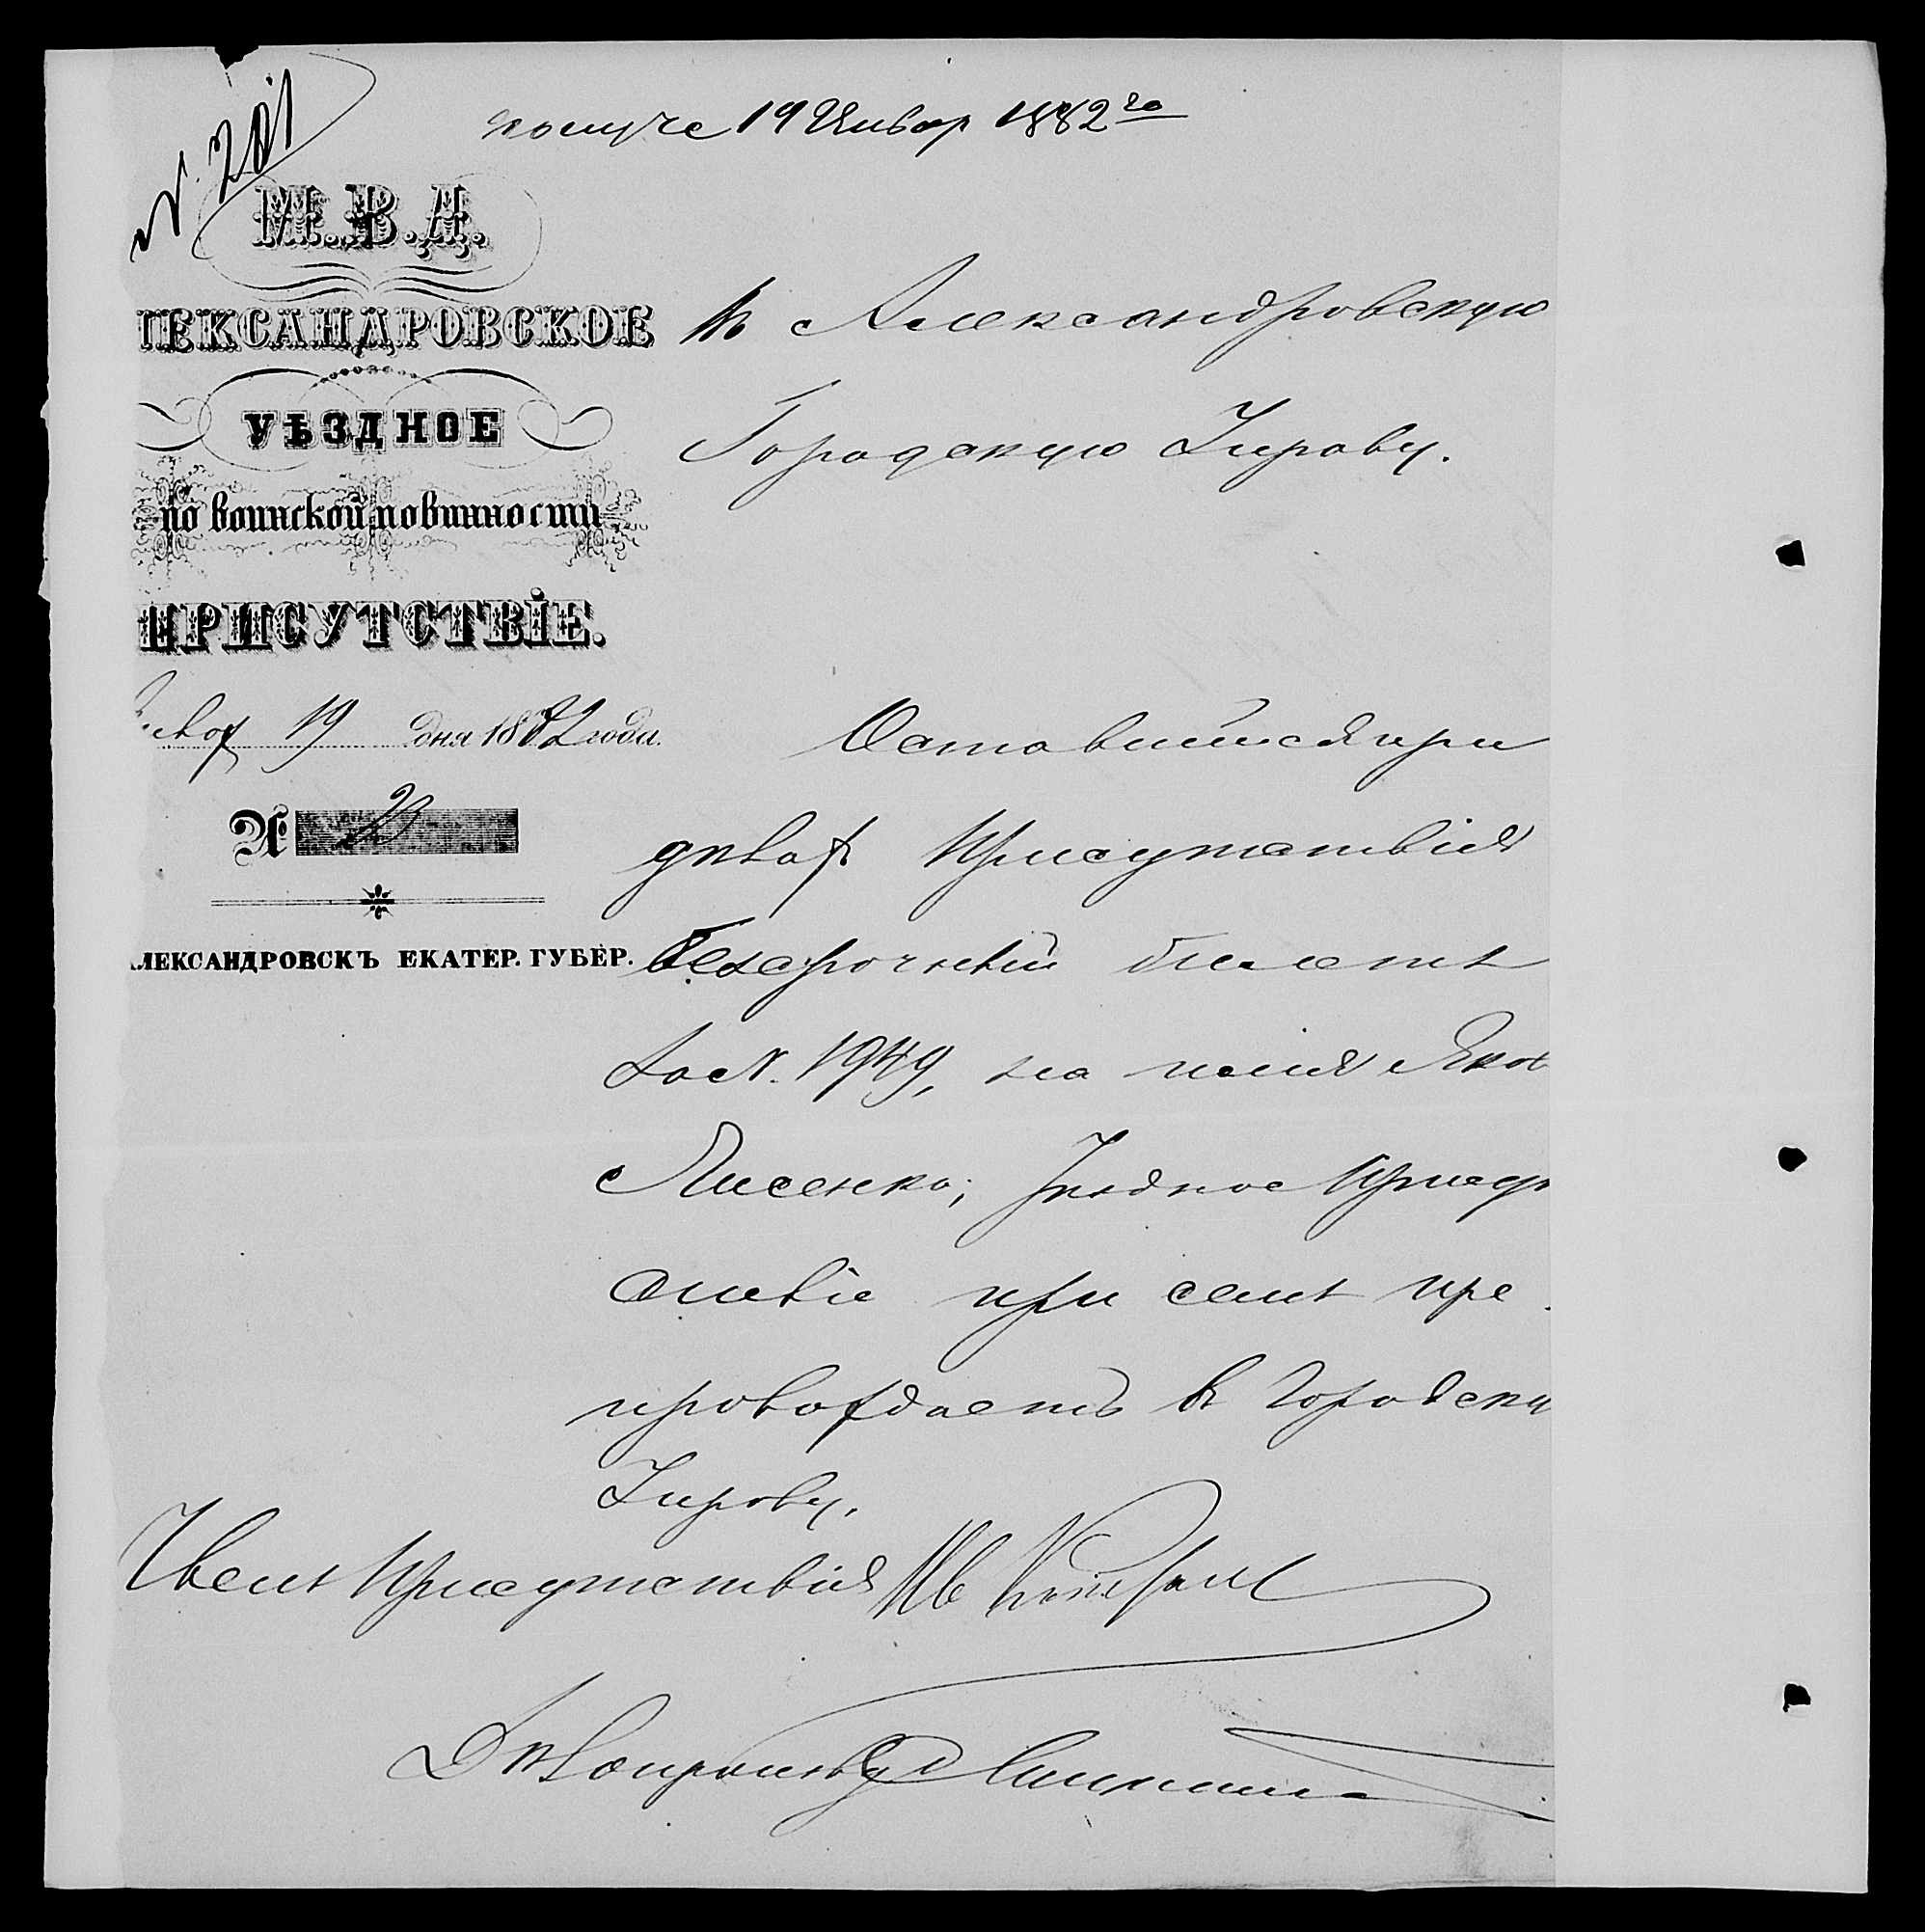 № 201
получе 19 Январ 1882го
М.В.Д.
ЛЕКСАНДРОВСКОЕ
УѢЗДНОЕ
по воинской повинности
ПРИСУТСТВІЕ.
Январ 19 дня 1882 года.
№ 20
АЛЕКСАНДРОВСКЪ ЕКАТЕР. ГУБЕР.
Въ Александровскую
Городскую Управу.
Оставшийся при
дѣлах Присутствія
безсрочный билетъ
за №. 1949, на имя Яков
Лисенко, Уѣздное Присут
ствіе при семъ пре
провождаетъ въ Городску
Управу.
Членъ Присутствія
Дѣлопроизвод